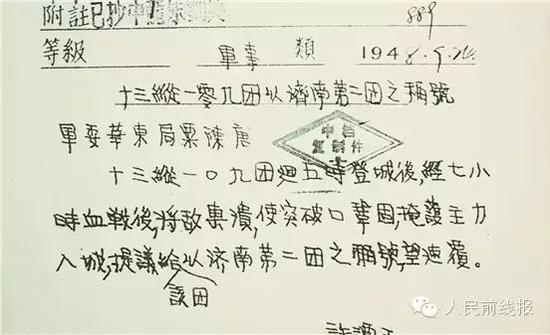 附註已抄中
889
等級 軍事類 1948.9.24.
十三縱一零九团以濟南第二团之稱號
軍委華東局粟陳唐
中档
复制件
十三縱一〇九团廻五時登城後,經七小
時血戰後,將敌击潰,使突破口鞏固,掩護主力
入城,提議給以济南第二团之稱號,望速覆。
該团
人民前线报